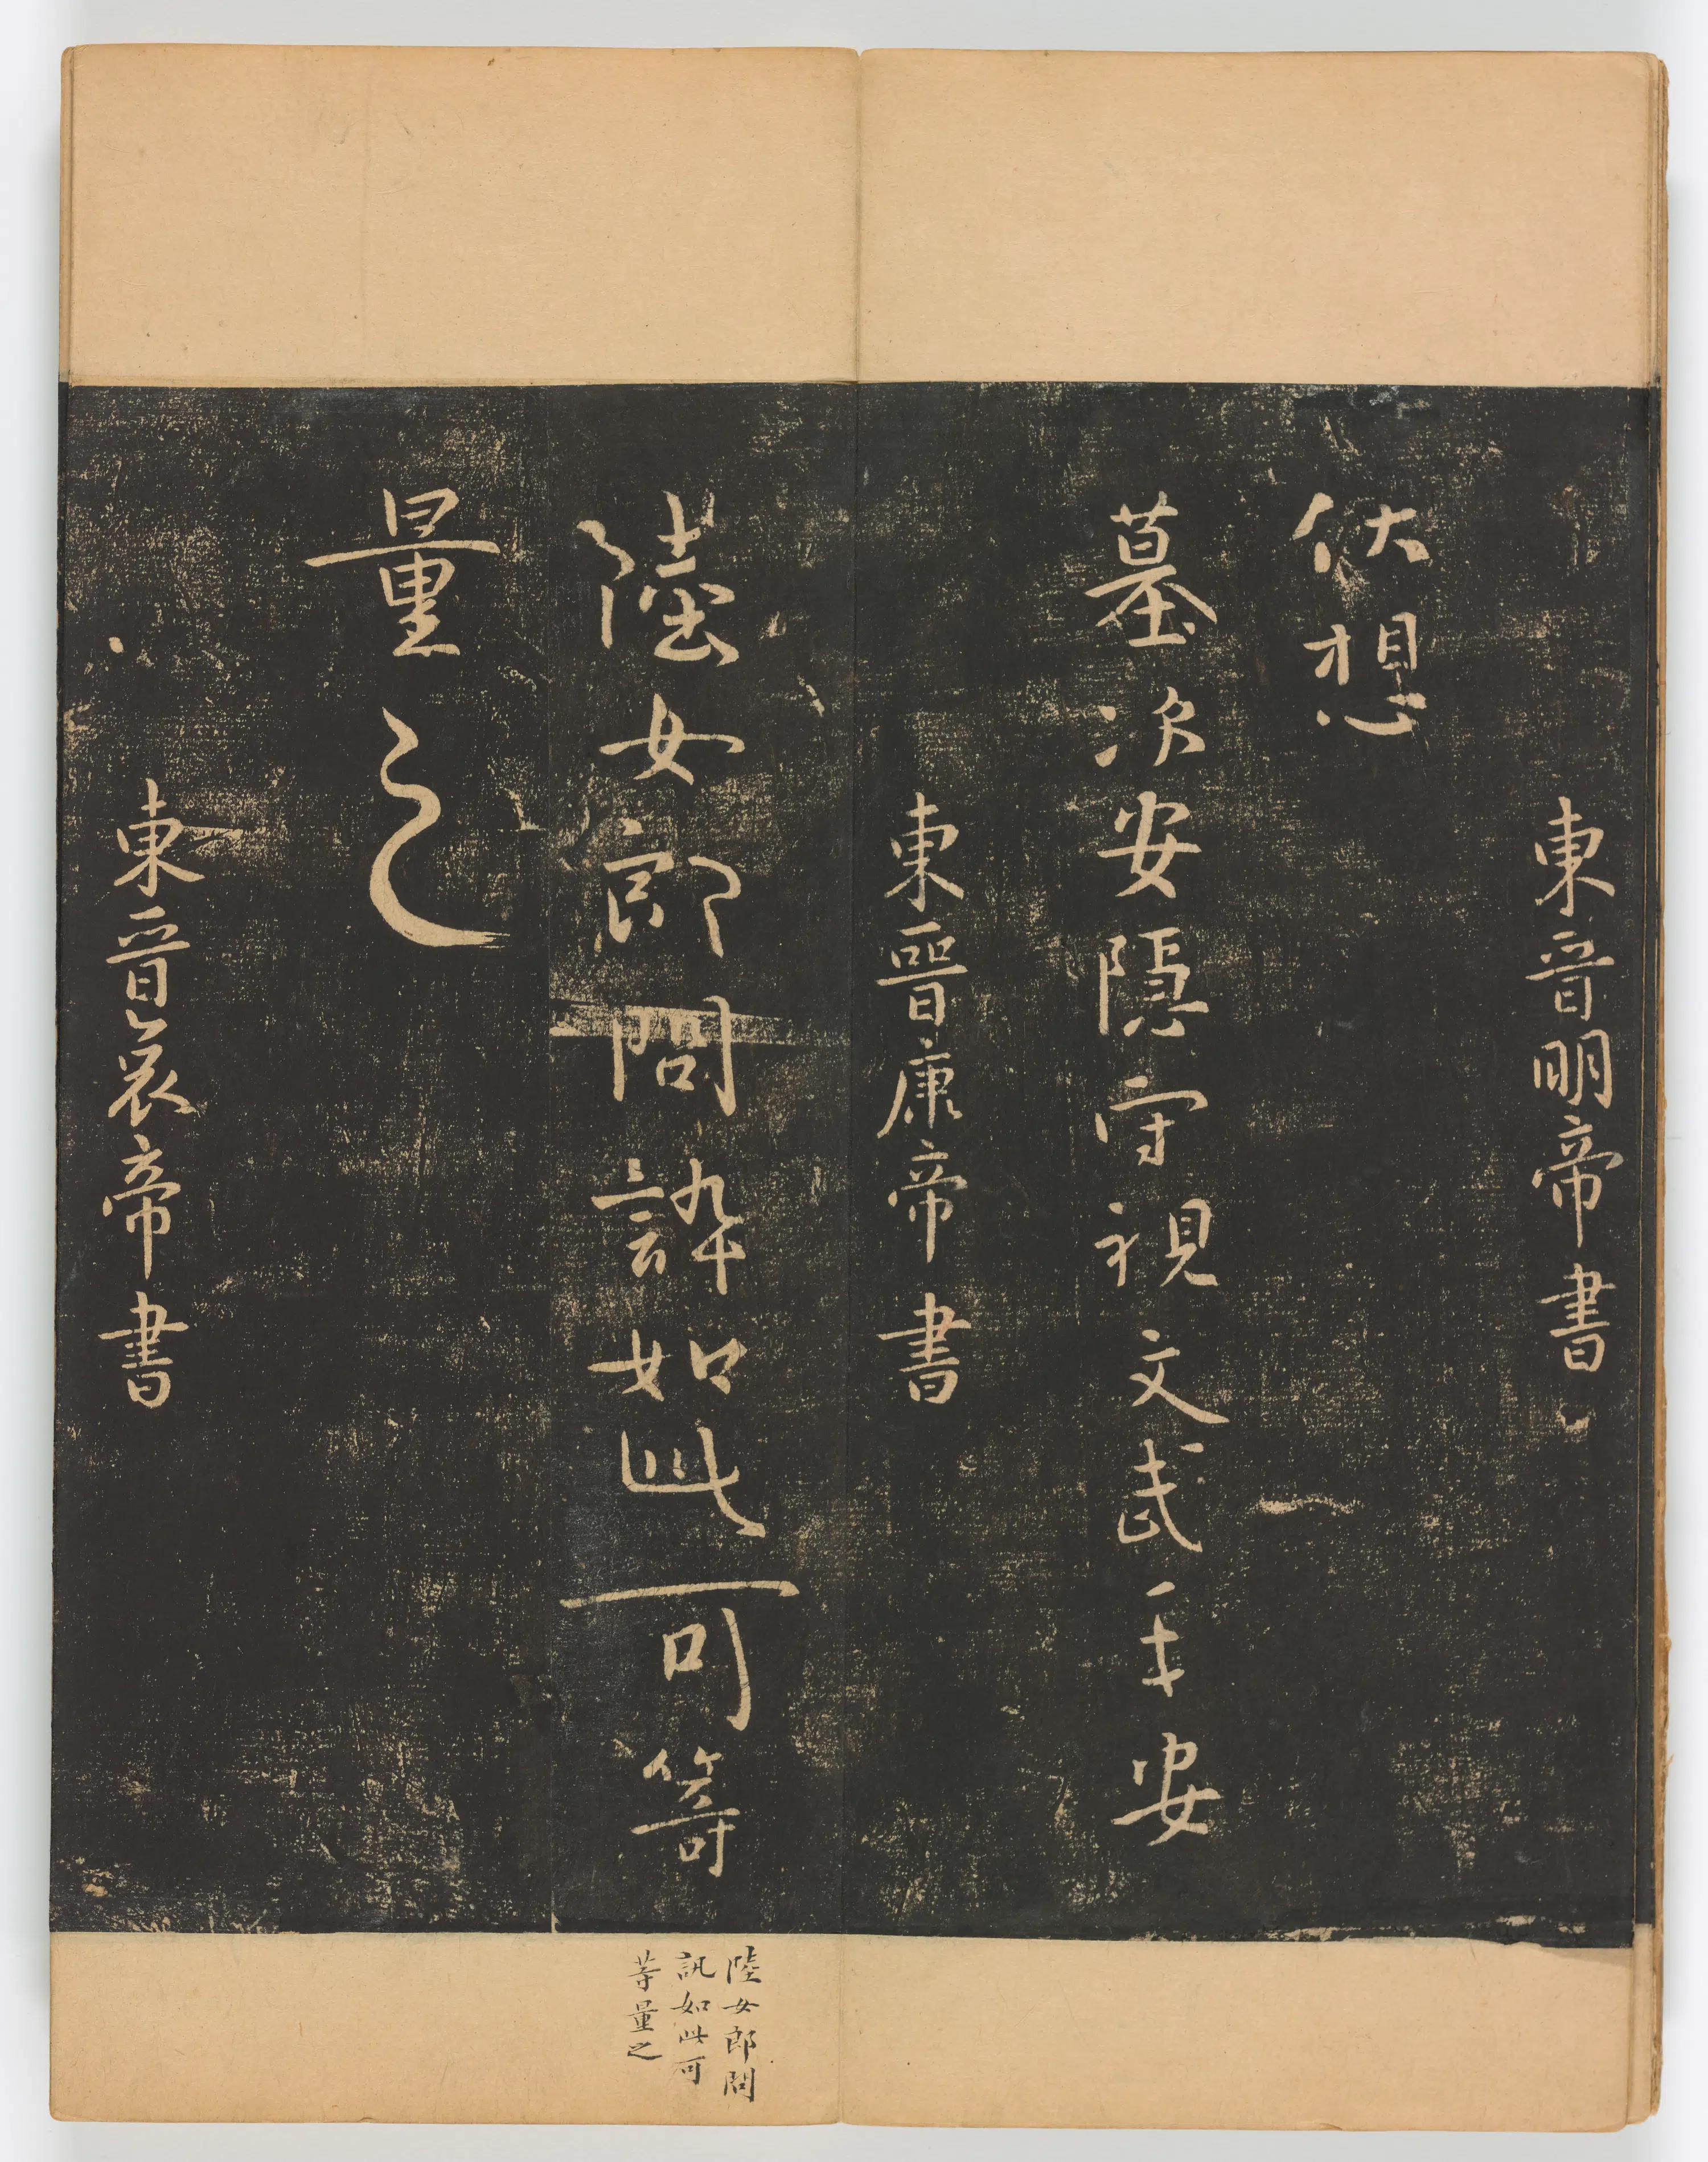 東晉明帝書
伏想
墓次安隱守視文武平安
東晉康帝書
陸女郎問訊如此可等
量之
東晉哀帝書
陸女郎問
訊如此可
等量之